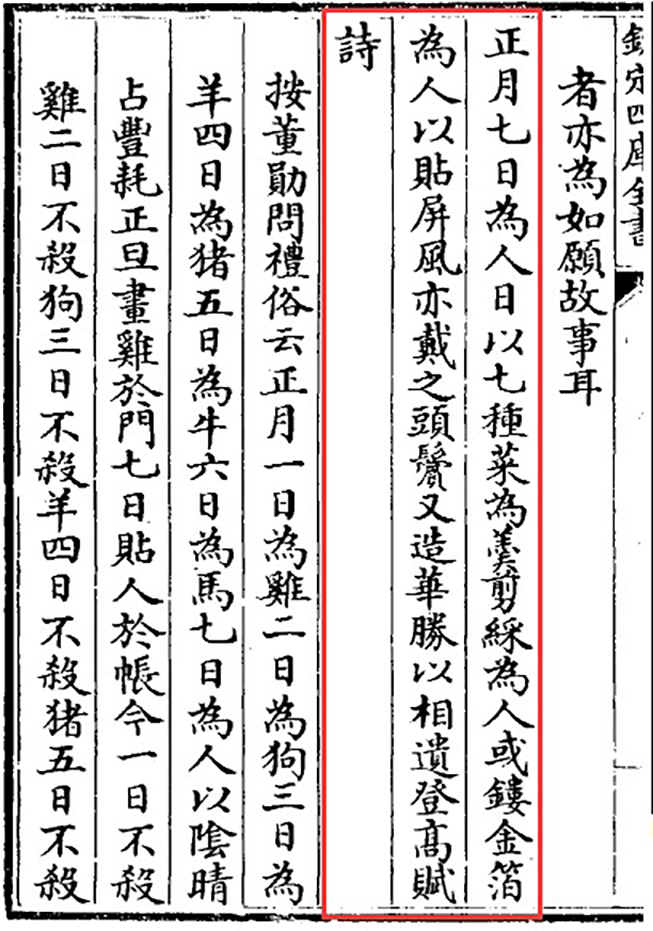 欽定四庫全書
者亦為如願故事耳
正月七日為人日以七種菜為羹剪綵為人或鏤金箔
為人以貼屏風亦戴之頭鬢又造華勝以相遺登髙賦
詩
按董勛問禮俗云正月一日為雞二日為狗三日為
羊四日為猪五日為牛六日為馬七日為人以陰晴
占豐耗正旦畫雞於門七日貼人於帳今一日不殺
雞二日不殺狗三日不殺羊四日不殺猪五日不殺